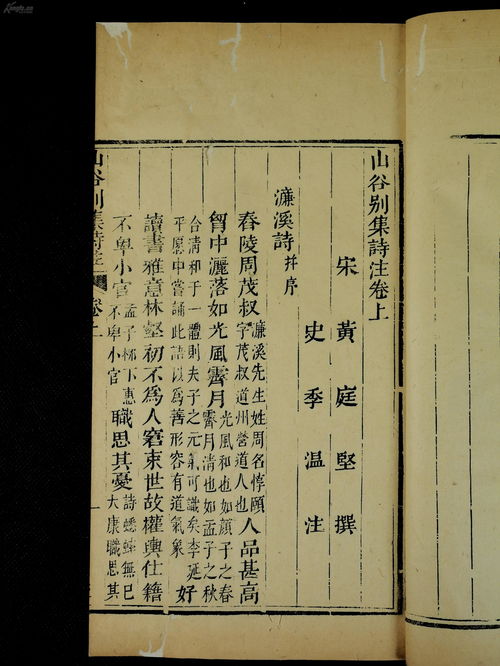 山谷别集詩注卷上
宋 黃庭堅 撰
史季温 注
濂溪詩 并序
春陵周茂叔 濂溪先生姓周名惇頤
字茂叔道州營道人也 人品甚高
胷中灑落如光風霽月 光風和也如顔子之春
霽月清也如孟子之秋
台清和于一體則夫子之元氣可識矣李延
平愿中嘗誦此語以爲善形容有道氣象 好
讀書雅意林壑初不為人窘束世故權輿仕籍
不卑小官 孟子柳下惠
不卑小官 職思其憂 詩蟋蟀無已
大康職思其
山谷别集詩注
卷上
一
Kongfz.cn